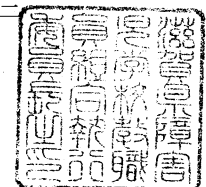 滋賀県障害
児学校教職
員組合執行
委員長之印